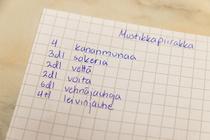 Mustikkapiirakka
4 kananmunaa
3dl sokeria
2dl vettä
2dl voita
6dl vehnäjauhoja
4tl leivinjauhe